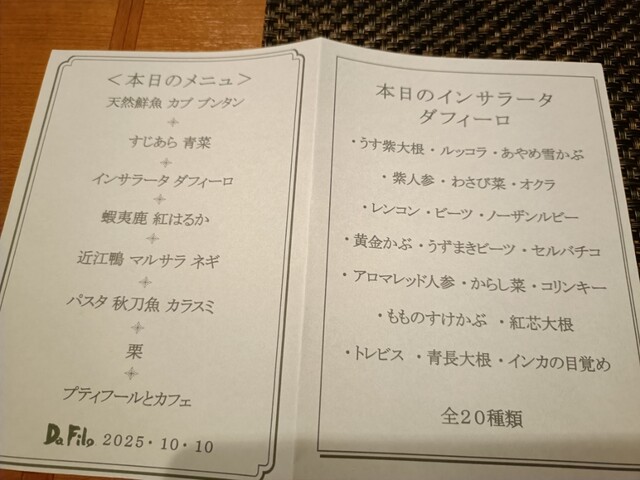 ＜本日のメニュュ＞
天然鮮魚 カブ ブンタン
すじあら 青菜
インサラータ ダフィーロ
蝦夷鹿 紅はるか
近江鴨 マルサラ ネギ
パスタ 秋刀魚 カラスミ
栗
プティフールとカフェ
Da Filo 2025・10・10
本日のインサラータ
ダフィーロ
・うす紫大根・ルッコラ・あやめ雪かぶ
・紫人参・わさび菜・オクラ
・レンコン・ビーツ・ノーザンルビー
・黄金かぶ・うずまきビーツ・セルバチコ
・アロマレッド人参・からし菜・コリンキー
・もものすけかぶ ・紅芯大根
・トレビス ・青長大根・インカの目覚め
全20種類